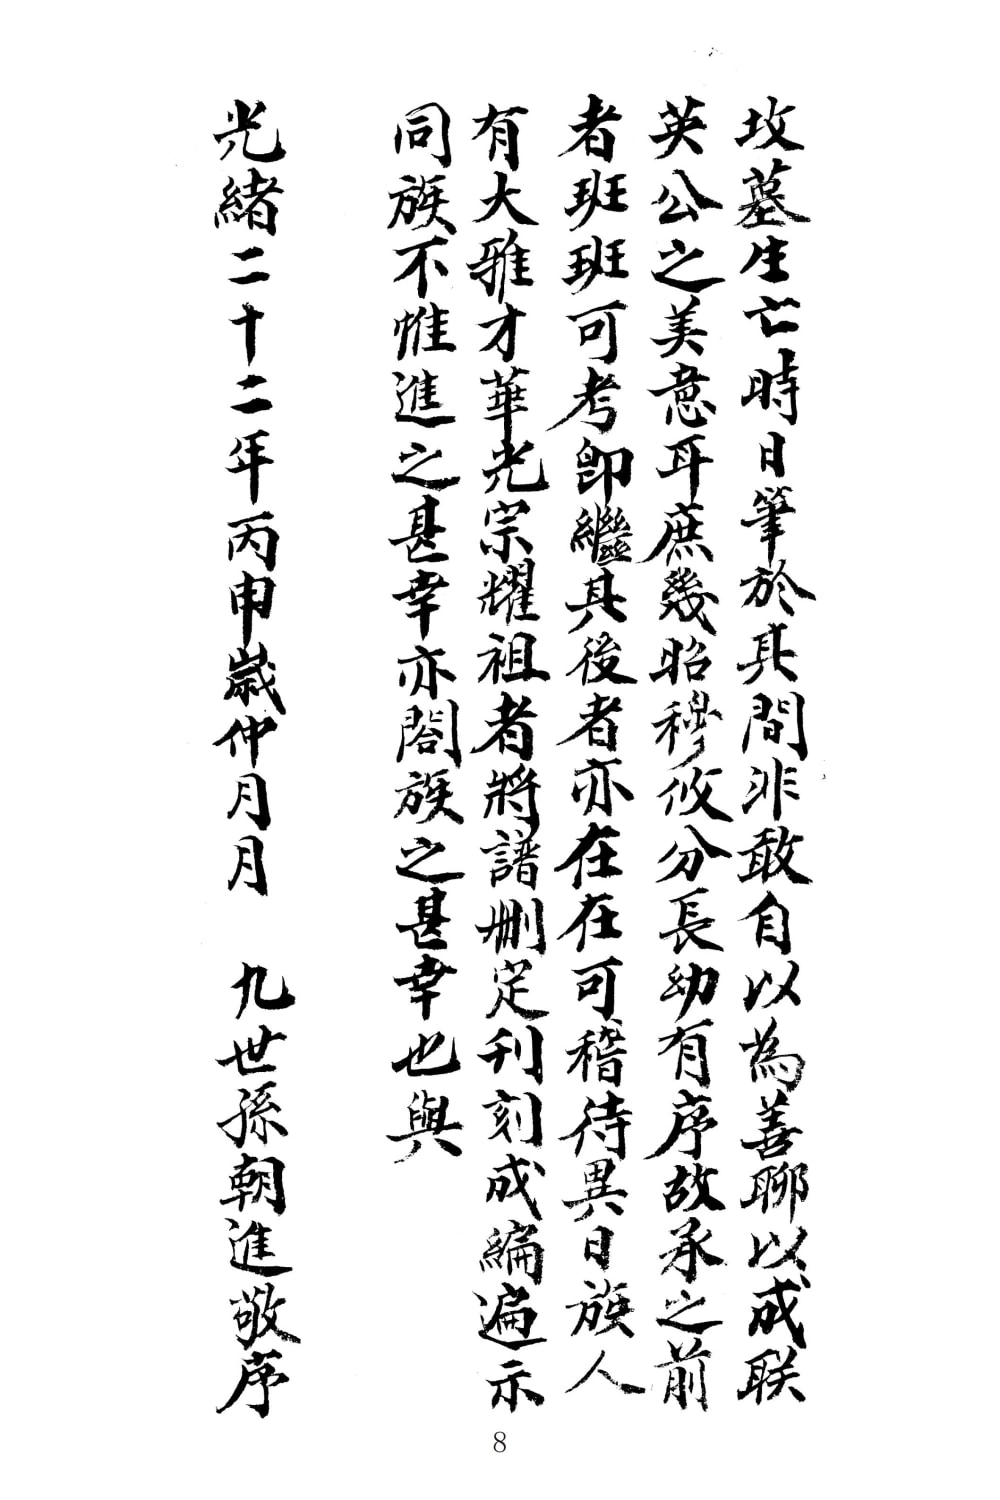 坟墓生亡時日筆於其間非敢自以為善聊以成联
英公之美意耳庶幾昭穆攸分長幼有序故承之前
者班班可考即繼其後者亦在在可稽待異日族人
有大雅才華光宗耀祖者將譜刪定刊刻成編遍示
同族不惟進之甚幸亦閤族之甚幸也與
光緒二十二年丙申歲仲月月　九世孫朝進敬序
8